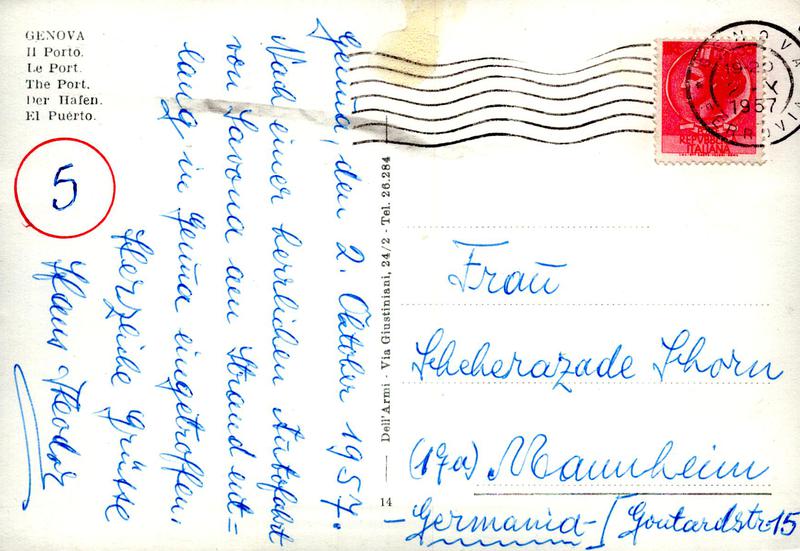 GENOVA
Il Porto.
Le Port.
The Port.
Der Hafen.
El Puérto.
5
Genua, den 2. Oktober 1957.
Nach einer herrlichen Autofahrt
von Savona am Strand ent=
lang in Genua eingetroffen.
Herzliche Grüsse
Hans Theodor
Dell'Armi - Via Giustiniani, 24/2 - Tel. 26.284
14
1957
REPUBBLICA
ITALIANA
Frau
Scheherazade Schorn
(17a) Mannheim
- Germania - Goutardstr. 15